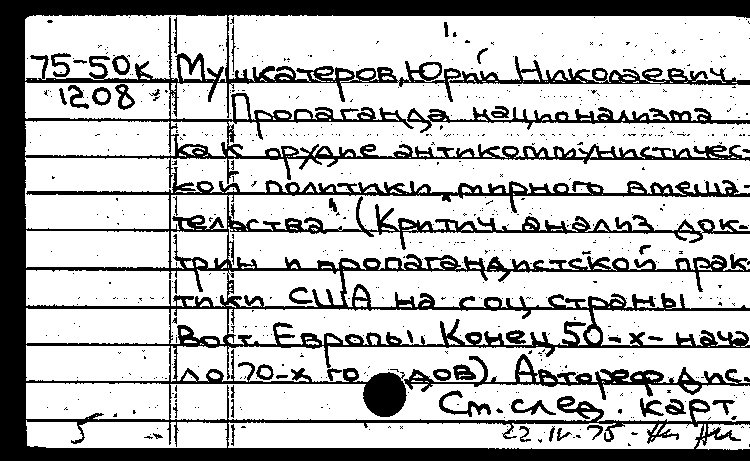 1.
75-50к Мушкатеров, Юрий Николаевич.
1208
Пропаганда национализма
как орудие антикоммунистичес-
кой политики "мирного вмеша-
тельства". (Критич. анализ док-
трин и пропагандистской прак-
тики США на соц. страны
Вост. Европы. Конец 50-х - нача
ло 70-х годов). Автореф. дис.
См. след. карт.
5 22.IV.75.